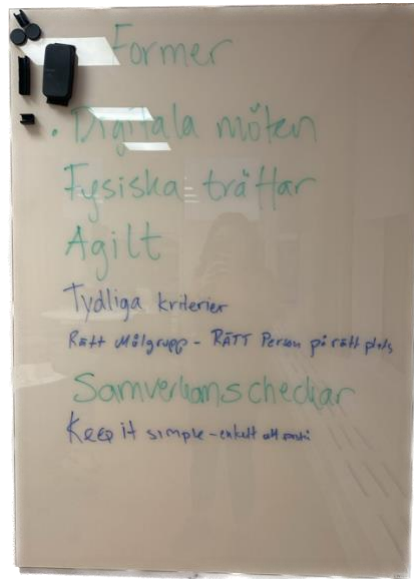 Former
• Digitala möten
Fysiska träffar
Agilt
Tydliga kriterier
Rätt Målgrupp - RÄTT Person på rätt plats
Samverkanscheckar
Keep it simple - enkelt att